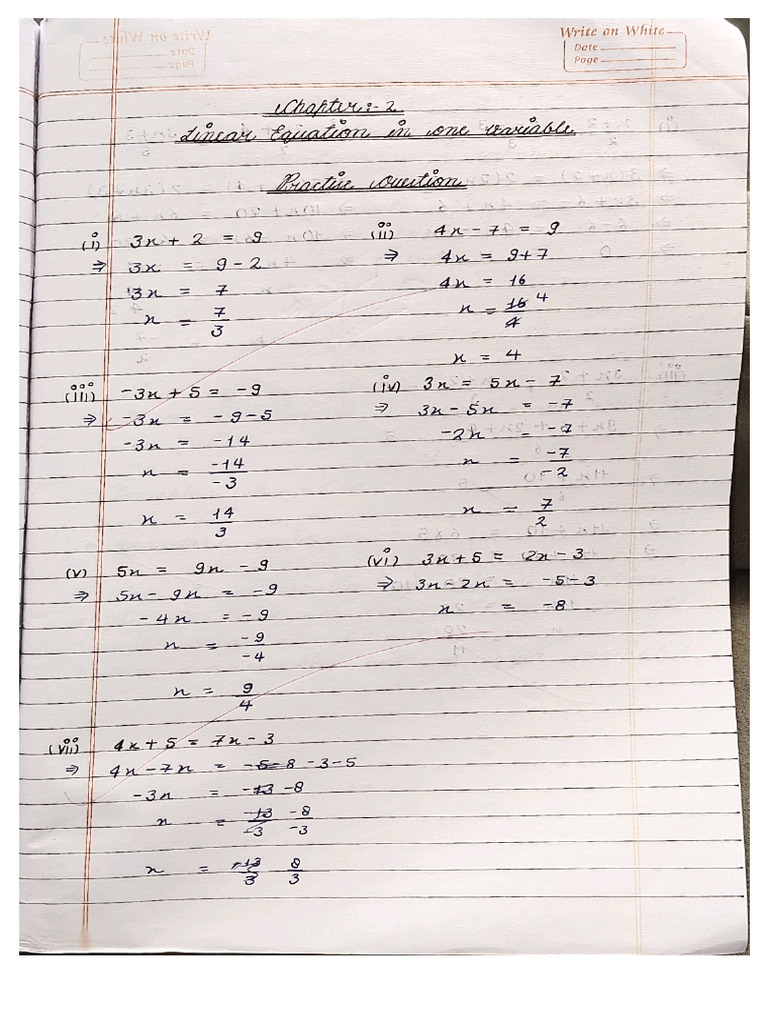 Write on White
Date
Page
Chapter :- 2
Linear Equation in one variable
Practise Question
(i) 3x + 2 = 9
⇒ 3x = 9 - 2
3x = 7
x = 7/3
(ii) 4x - 7 = 9
⇒ 4x = 9 + 7
4x = 16
x = 16/4 4
x = 4
(iii) -3x + 5 = -9
⇒ -3x = -9 - 5
-3x = -14
x = -14/-3
x = 14/3
(iv) 3x = 5x - 7
⇒ 3x - 5x = -7
-2x = -7
x = -7/-2
x = 7/2
(v) 5x = 9x - 9
⇒ 5x - 9x = -9
-4x = -9
x = -9/-4
x = 9/4
(vi) 3x + 5 = 2x - 3
⇒ 3x - 2x = -5 - 3
x = -8
(vii) 4x + 5 = 7x - 3
⇒ 4x - 7x = -5 - 8 - 3 - 5
-3x = -13 -8
x = -13/-3 -8/-3
x = -13/3 8/3